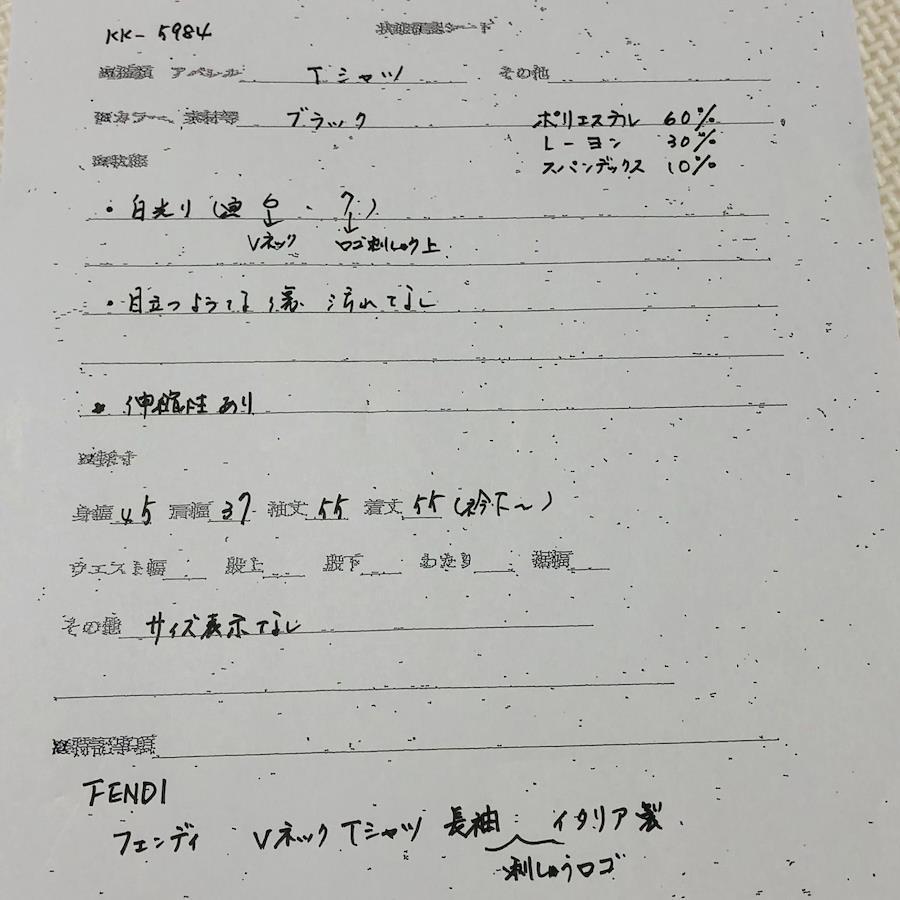 KK-5984
状態確認シート
アパレル Tシャツ その他
カラー、素材等 ブラック ポリエステル 60%
レーヨン 30%
スパンデックス 10%
・白光り ( 6 、7)
↓Vネック ↓ロゴ刺しゅう上
・目立つような傷 汚れてなし
・伸縮性あり
身幅 45 肩幅 37 袖丈 55 着丈 55 (衿下〜)
ウエスト幅 股上 股下 わたり 裾幅
その他 サイズ表示なし
特記事項
FENDI
フェンディ Vネック Tシャツ 長袖 イタリア製
刺しゅうロゴ